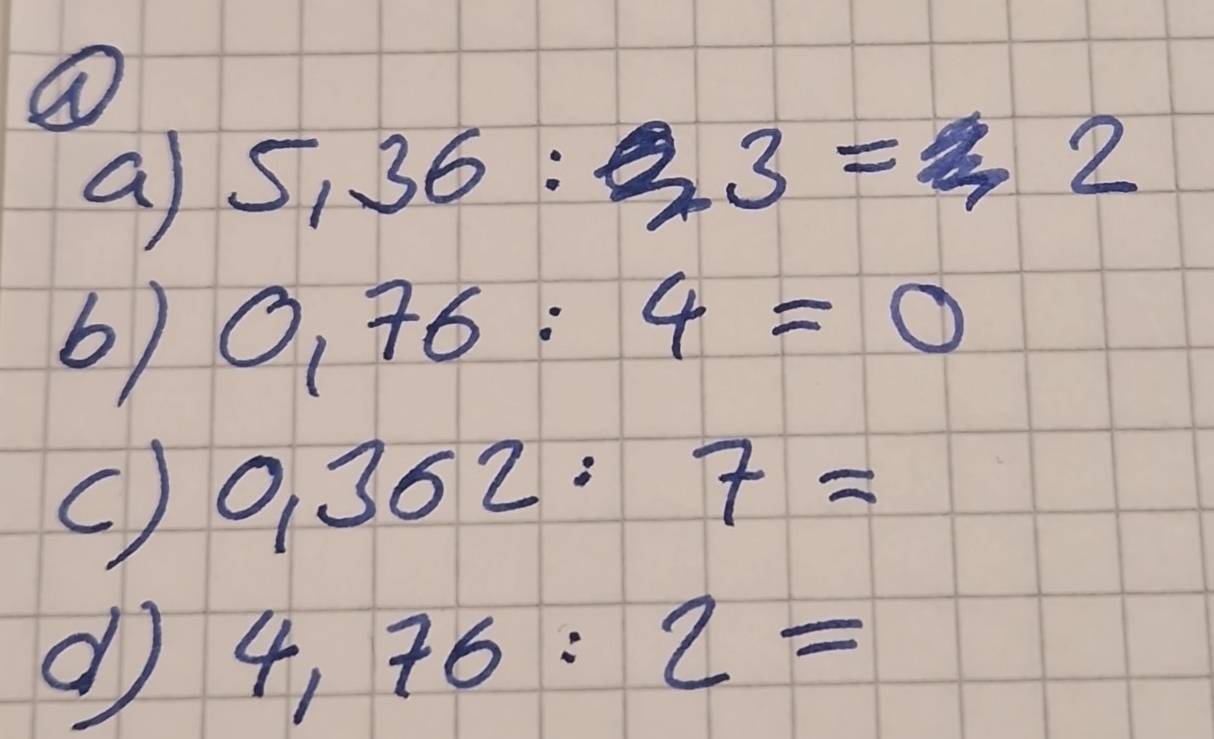 1
a) 5,36 : 3 = 2
b) 0,76 : 4 = 0
c) 0,362 : 7 =
d) 4,76 : 2 =